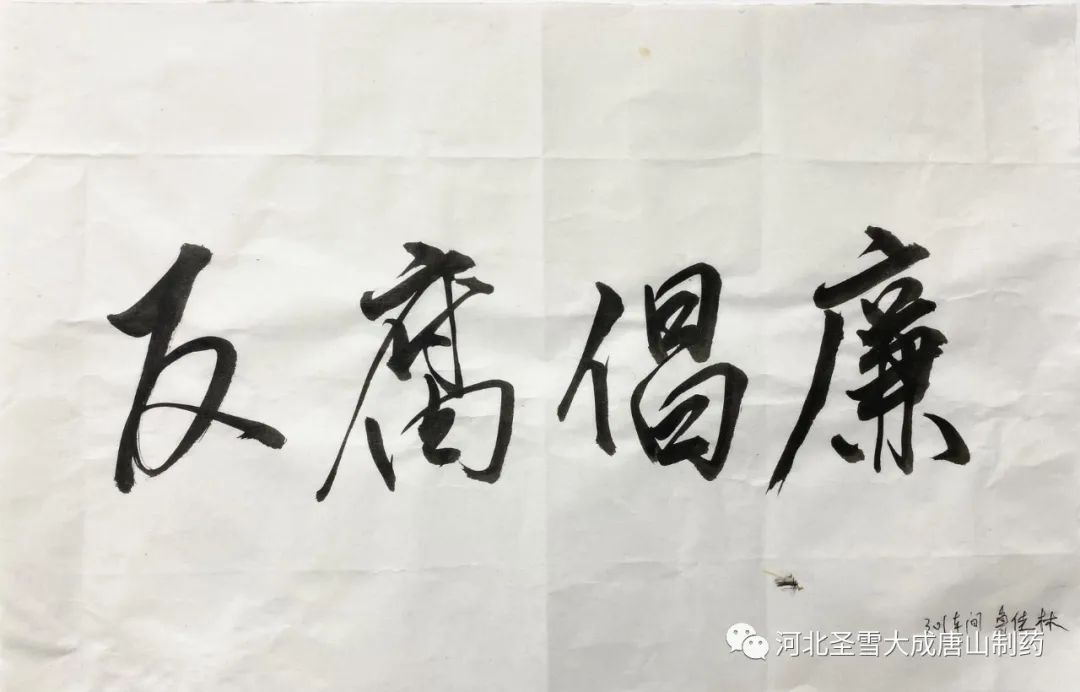 反腐倡廉
301车间 鱼佳林
河北圣雪大成唐山制药